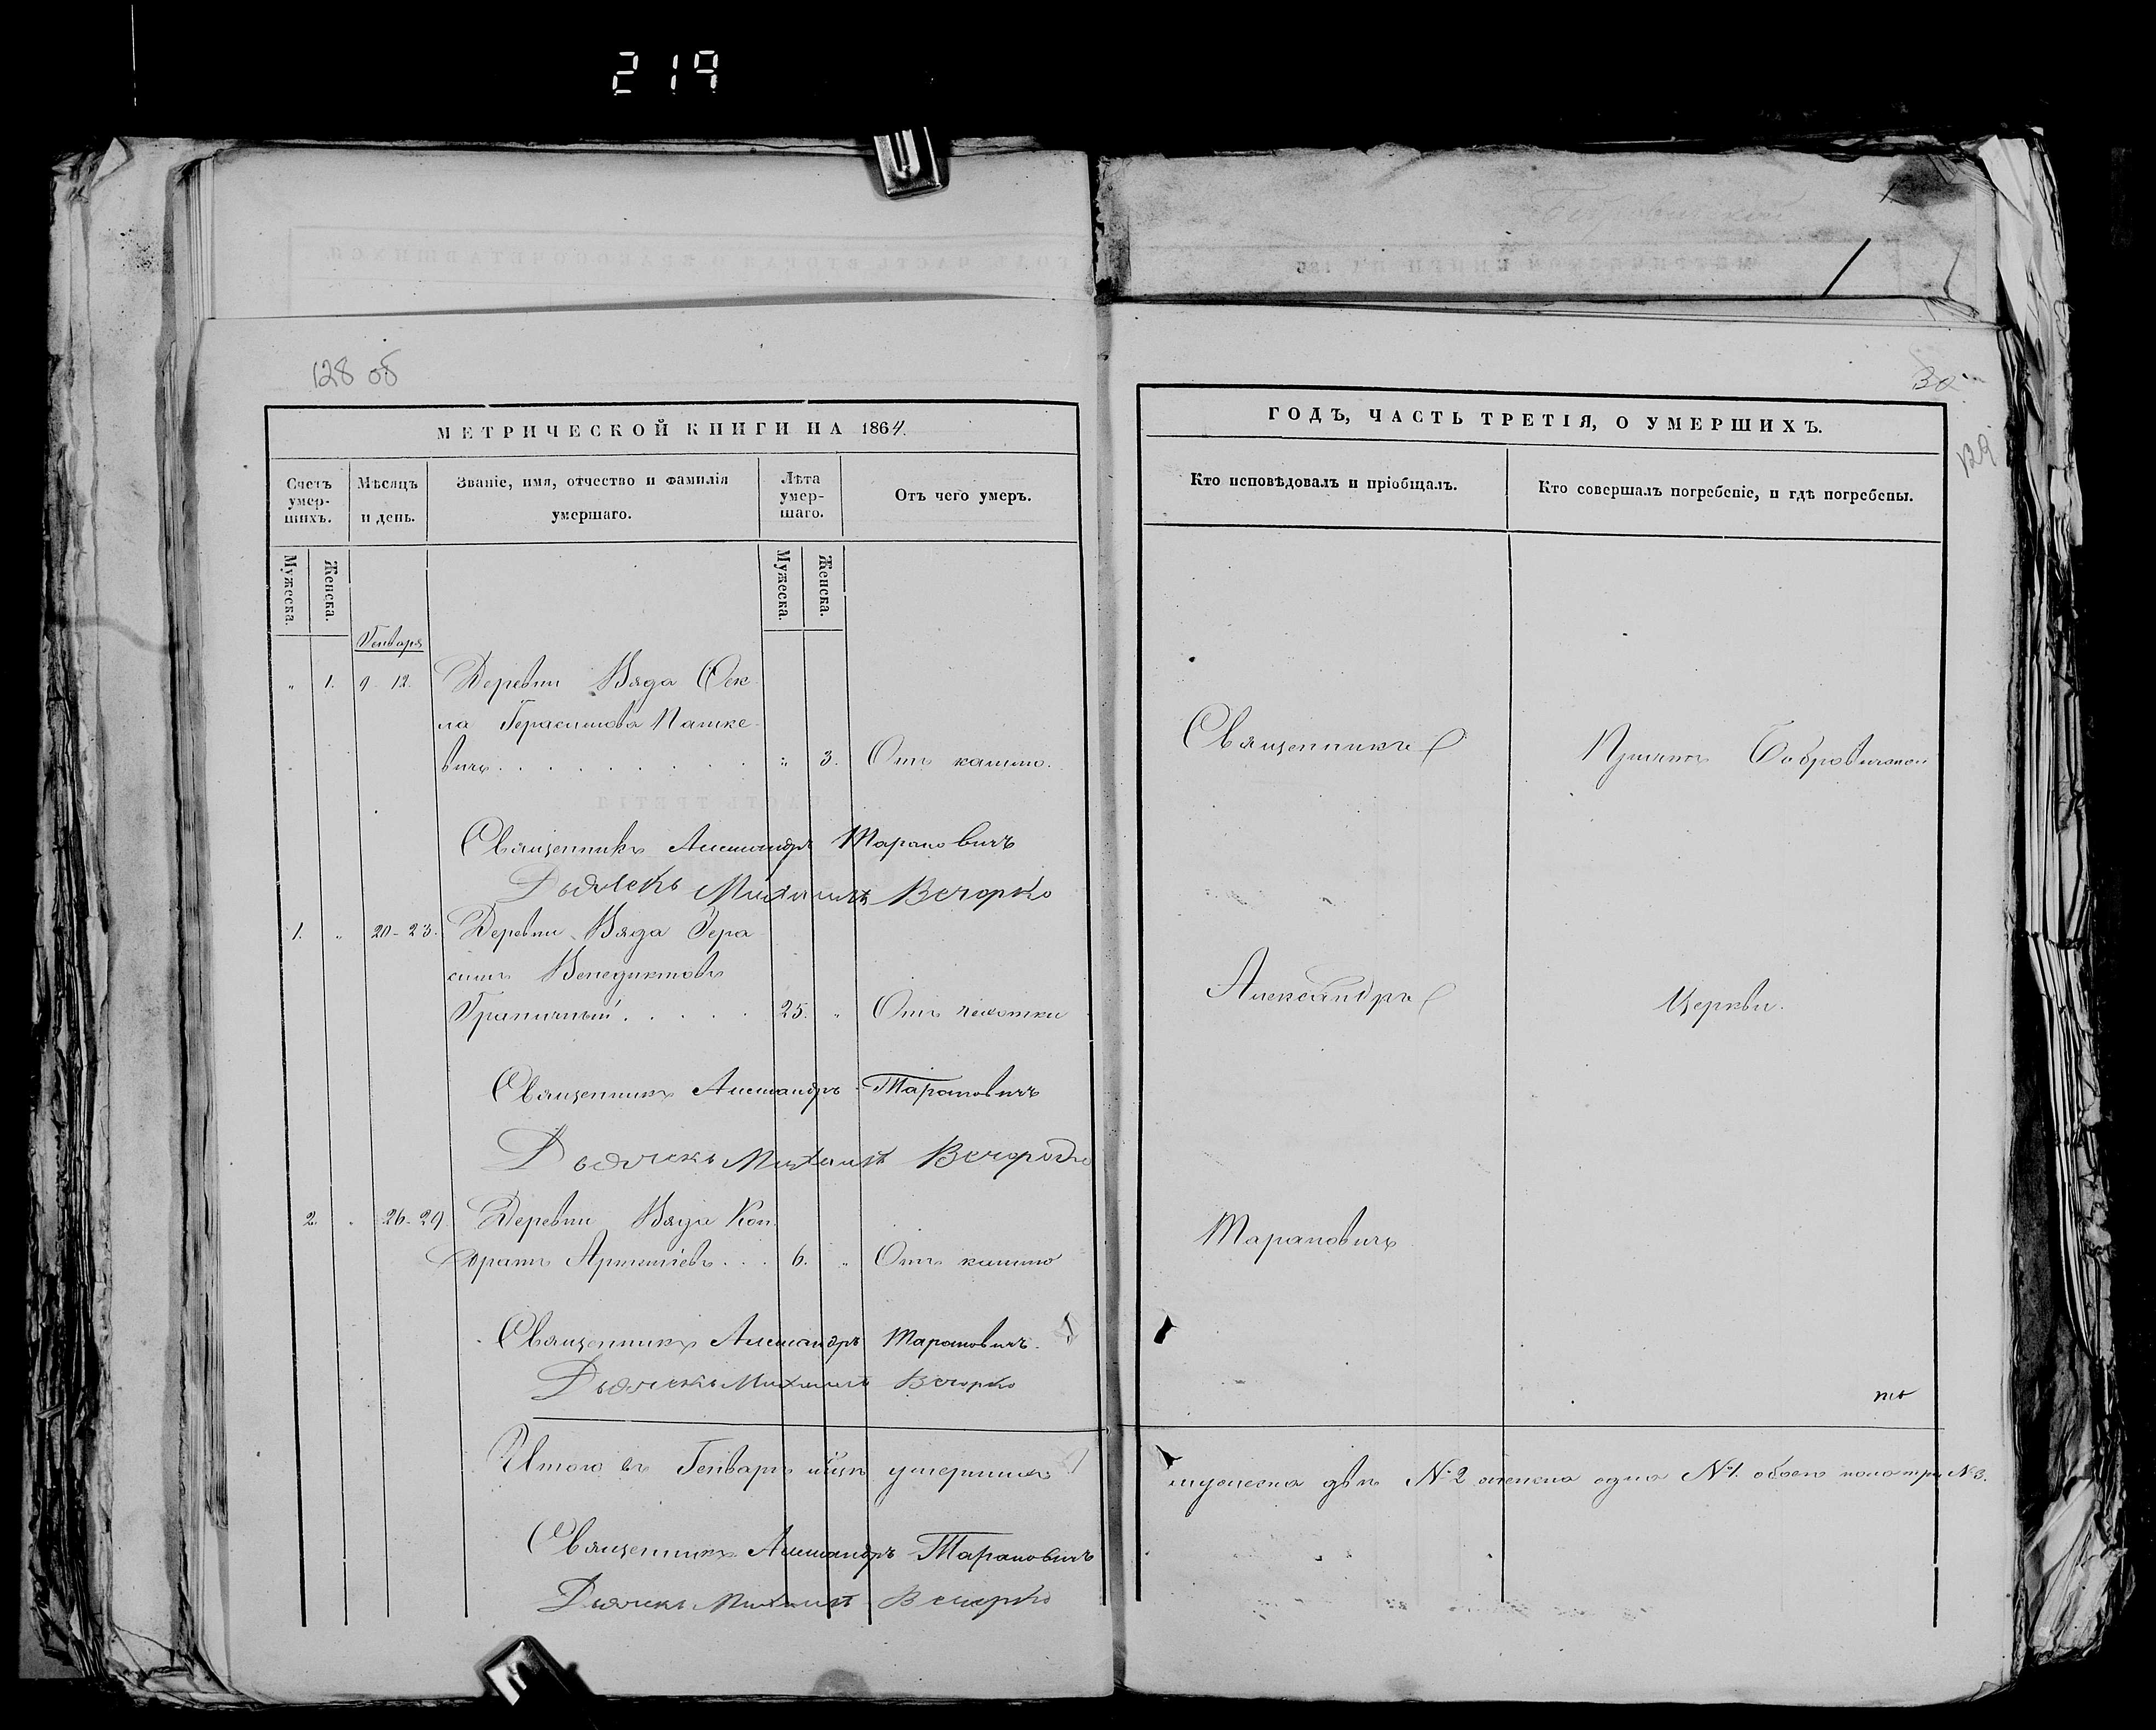 219
128 об
МЕТРИЧЕСКОЙ КНИГИ НА 1864.
Счетъ умер-шихъ.
Мѣсяцъ и день.
Званіе, имя, отчество и фамилія умершаго.
Лѣта умер-шаго.
Отъ чего умеръ.
Мужеска.
Женска.
Мужеска.
Женска.
Генваря
" 1. 9 12. Деревни Вяда Фек-
ла Герасимова Пашке-
вичъ . . . . . . . . . . " 3. Отъ кашлю.
Священникъ Александръ Тарановичъ
Дьячекъ Михаилъ Вечорко
1. " 20-23. Деревни Вяда Гера-
симъ Венедиктовъ
Граничный . . . . . 25. " Отъ чехотки
Священникъ Александръ Тарановичъ
Дьячекъ Михаилъ Вечорко
2. " 26-29. Деревни Вяда Кон-
дратъ Артеміевъ . . . 6. " Отъ кашлю
Священникъ Александръ Тарановичъ.
Дьячекъ Михаилъ Вечорко
Итого въ Генварѣ м-цѣ умершихъ
Священникъ Александръ Тарановичъ
Дьячекъ Михаилъ Вечорко
30
129
ГОДЪ, ЧАСТЬ ТРЕТІЯ, О УМЕРШИХЪ.
Кто исповѣдовалъ и пріобщалъ.
Кто совершалъ погребеніе, и гдѣ погребены.
Священникъ
Причтъ Бобровичской
Александръ
Церкви.
Тарановичъ
мужеска два №2 женска одна №1. обоего пола три №3.